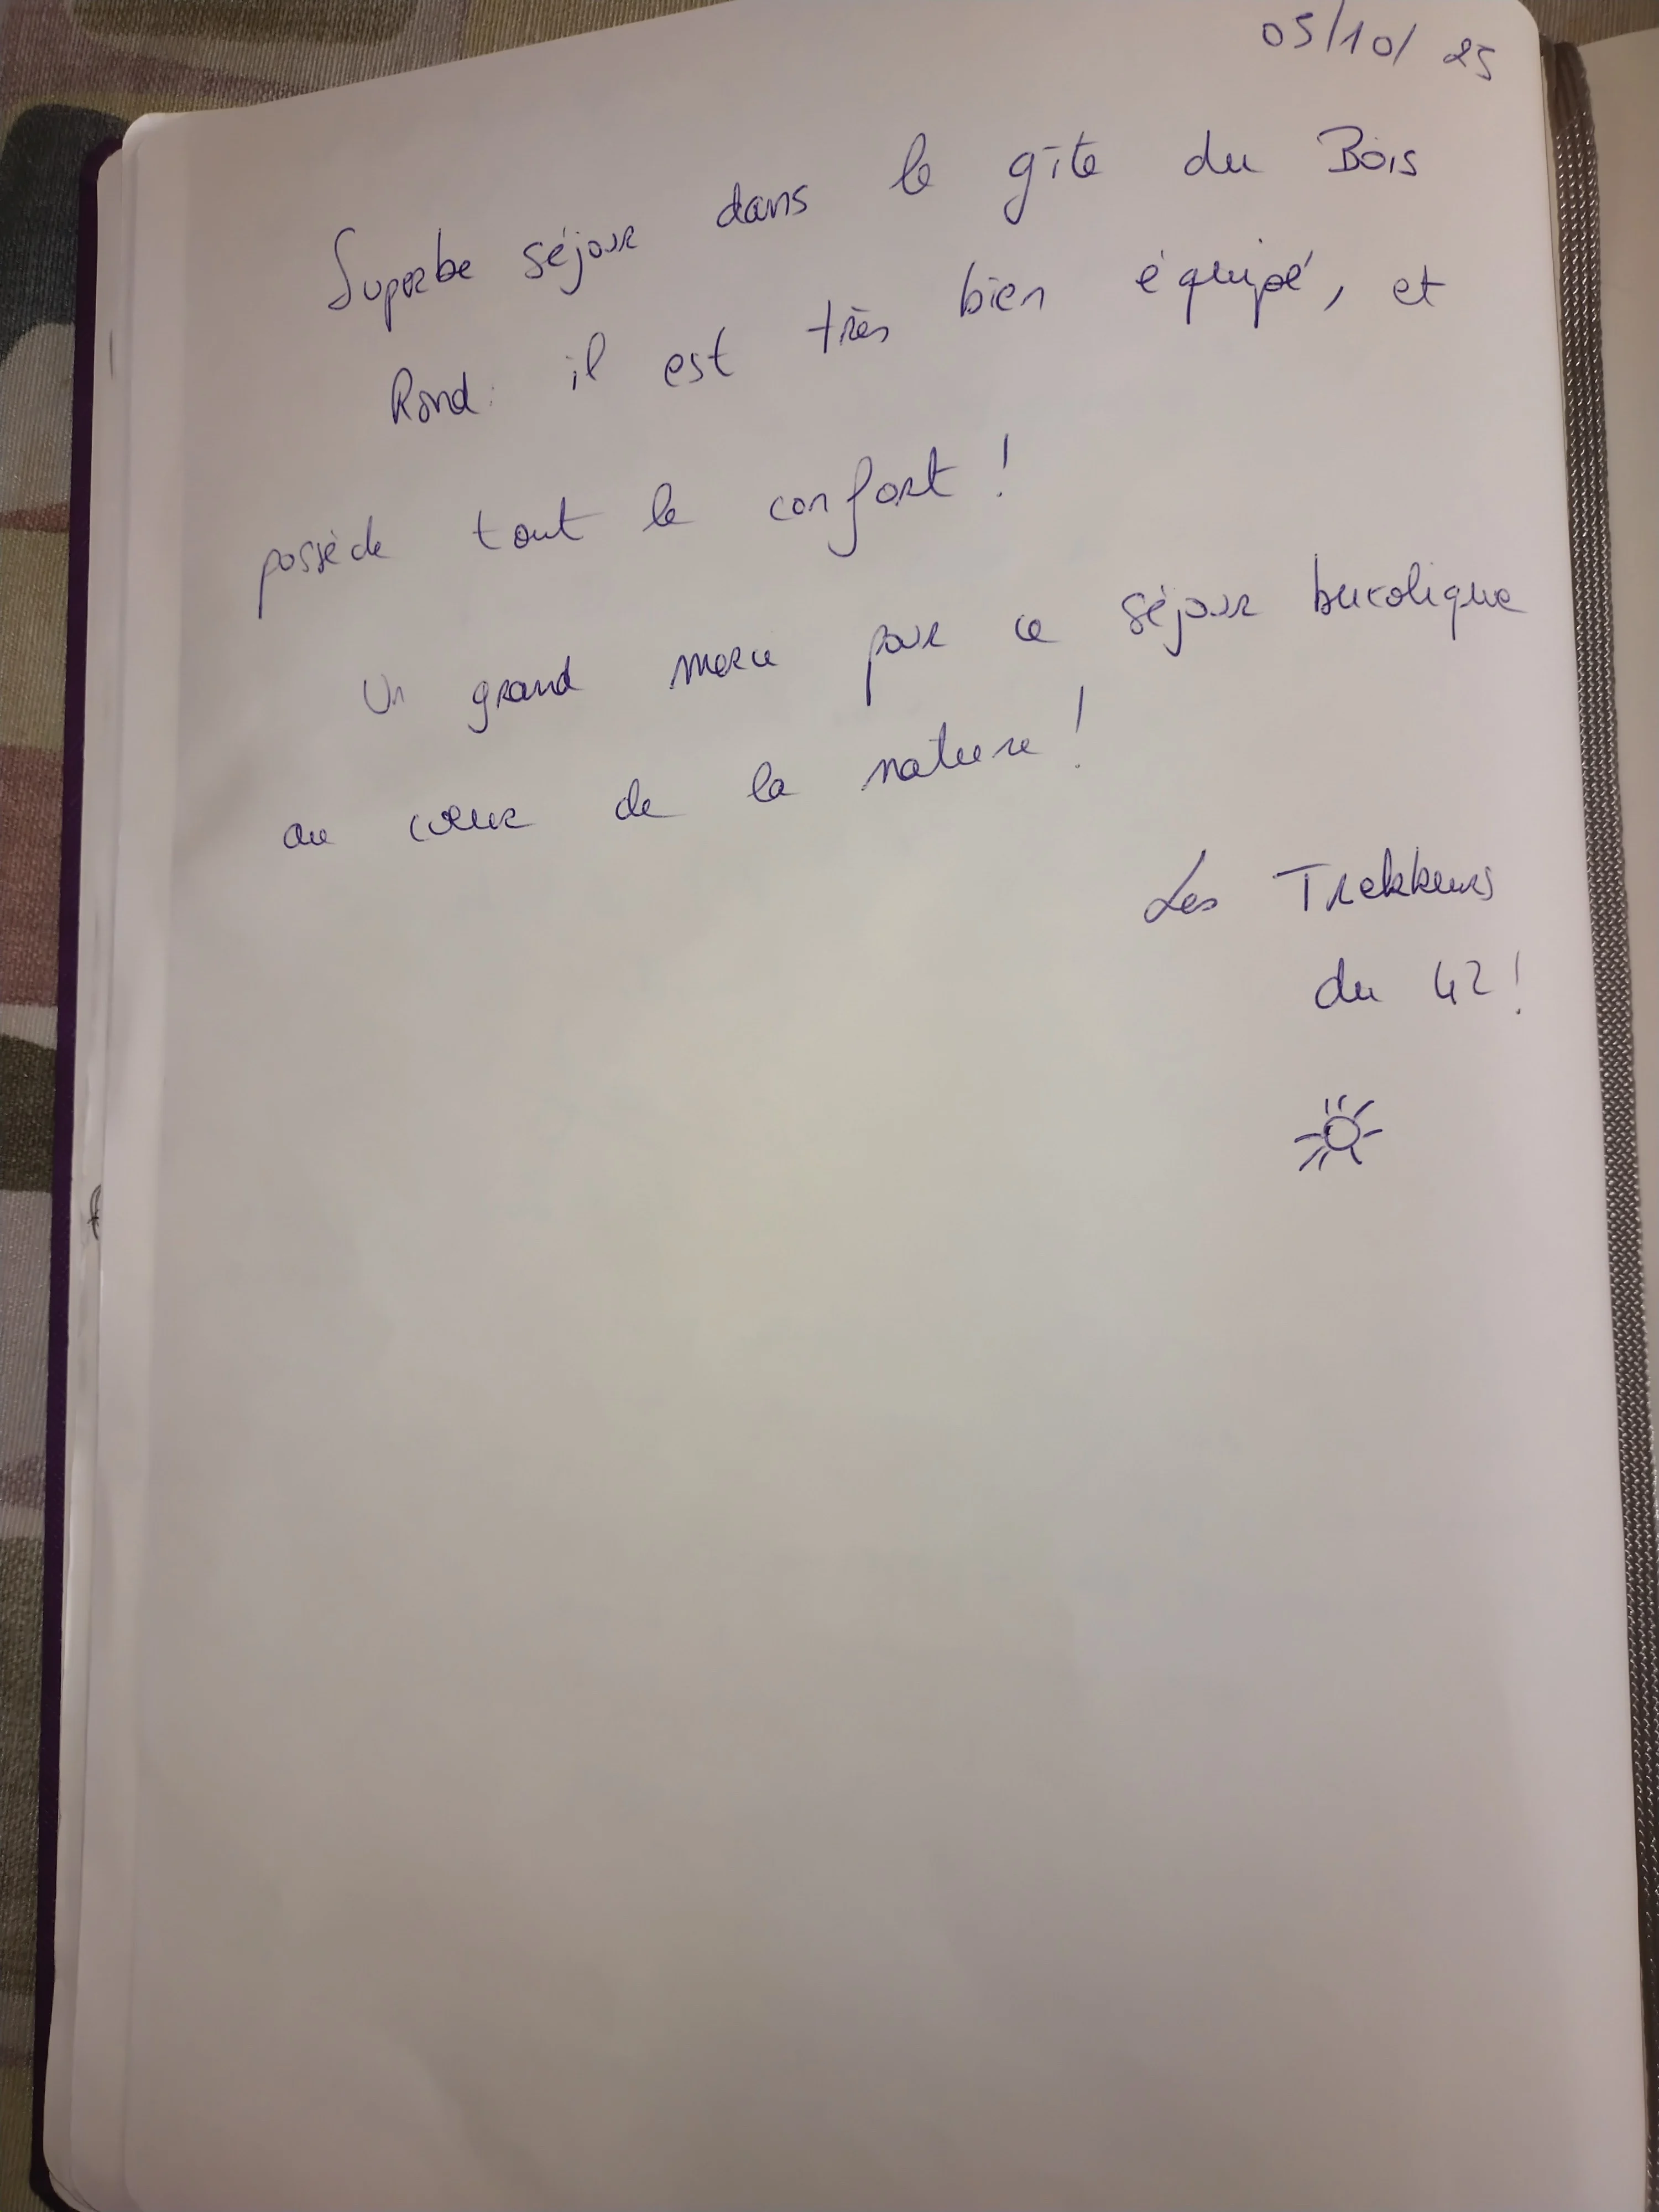 05/10/25
Superbe séjour dans le gîte du Bois
Rond : il est très bien équipé, et
possède tout le confort !
Un grand merci pour ce séjour bucolique
au cœur de la nature !
Les Trekkeurs
du 42 !